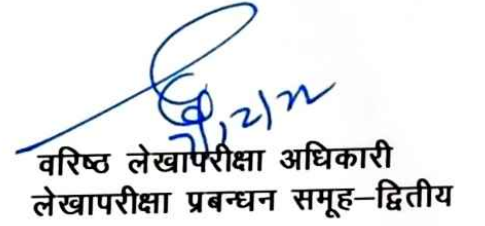 वरिष्ठ लेखापरीक्षा अधिकारी
लेखापरीक्षा प्रबन्धन समूह–द्वितीय